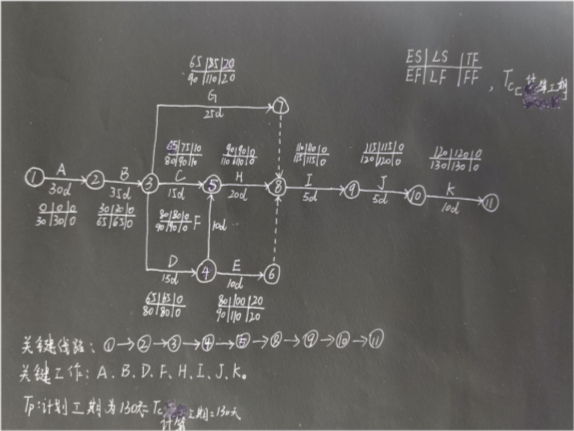 ES|LS|TF
EF|LF|FF , Tc=计算工期
65|85|20
90|110|20
G
25d
⑦
65|75|10
80|90|10
90|90|0
110|110|0
110|110|0
115|115|0
115|115|0
120|120|0
120|120|0
130|130|0
① A ② B ③ C ⑤ H ⑧ I ⑨ J ⑩ K ⑪
30d 35d 15d 20d 5d 5d 10d
0|0|0
30|30|0
30|30|0
65|65|0
80|80|0
90|90|0
F
10d
D ④ E ⑥
15d 10d
65|65|0
80|80|0
80|100|20
90|110|20
关键线路: ①→②→③→④→⑤→⑧→⑨→⑩→⑪
关键工作: A、B、D、F、H、I、J、K。
Tp:计划工期为130天=Tc 计算工期=130天